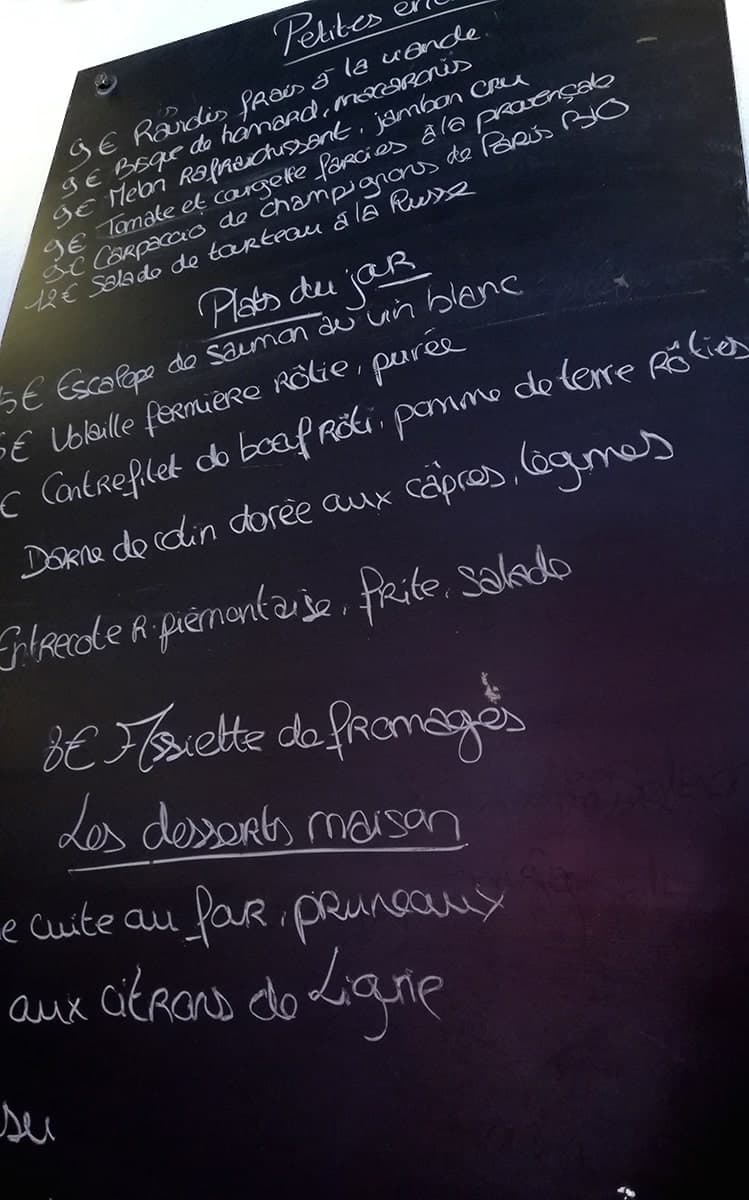 Petites
9€ Raviolis frais à la viande
9€ Bisque de homard, macaronis
9€ Melon Rafraichissant, jambon cru
9€ Tomate et courgette farcies à la provençale
9€ Carpaccio de champignons de Paris BIO
12€ Salade de tourteau à la Russe
Plats du jour
5€ Escalope de saumon au vin blanc
5€ Volaille fermière rôtie, purée
€ Contrefilet de boeuf Rôti, pomme de terre Rôties
Darne de colin dorée aux câpres, légumes
Entrecote R. piémontaise, frite, salade
8€ Assiette de fromages
Les desserts maison
e cuite au four, pruneaux
aux citrons de Ligurie